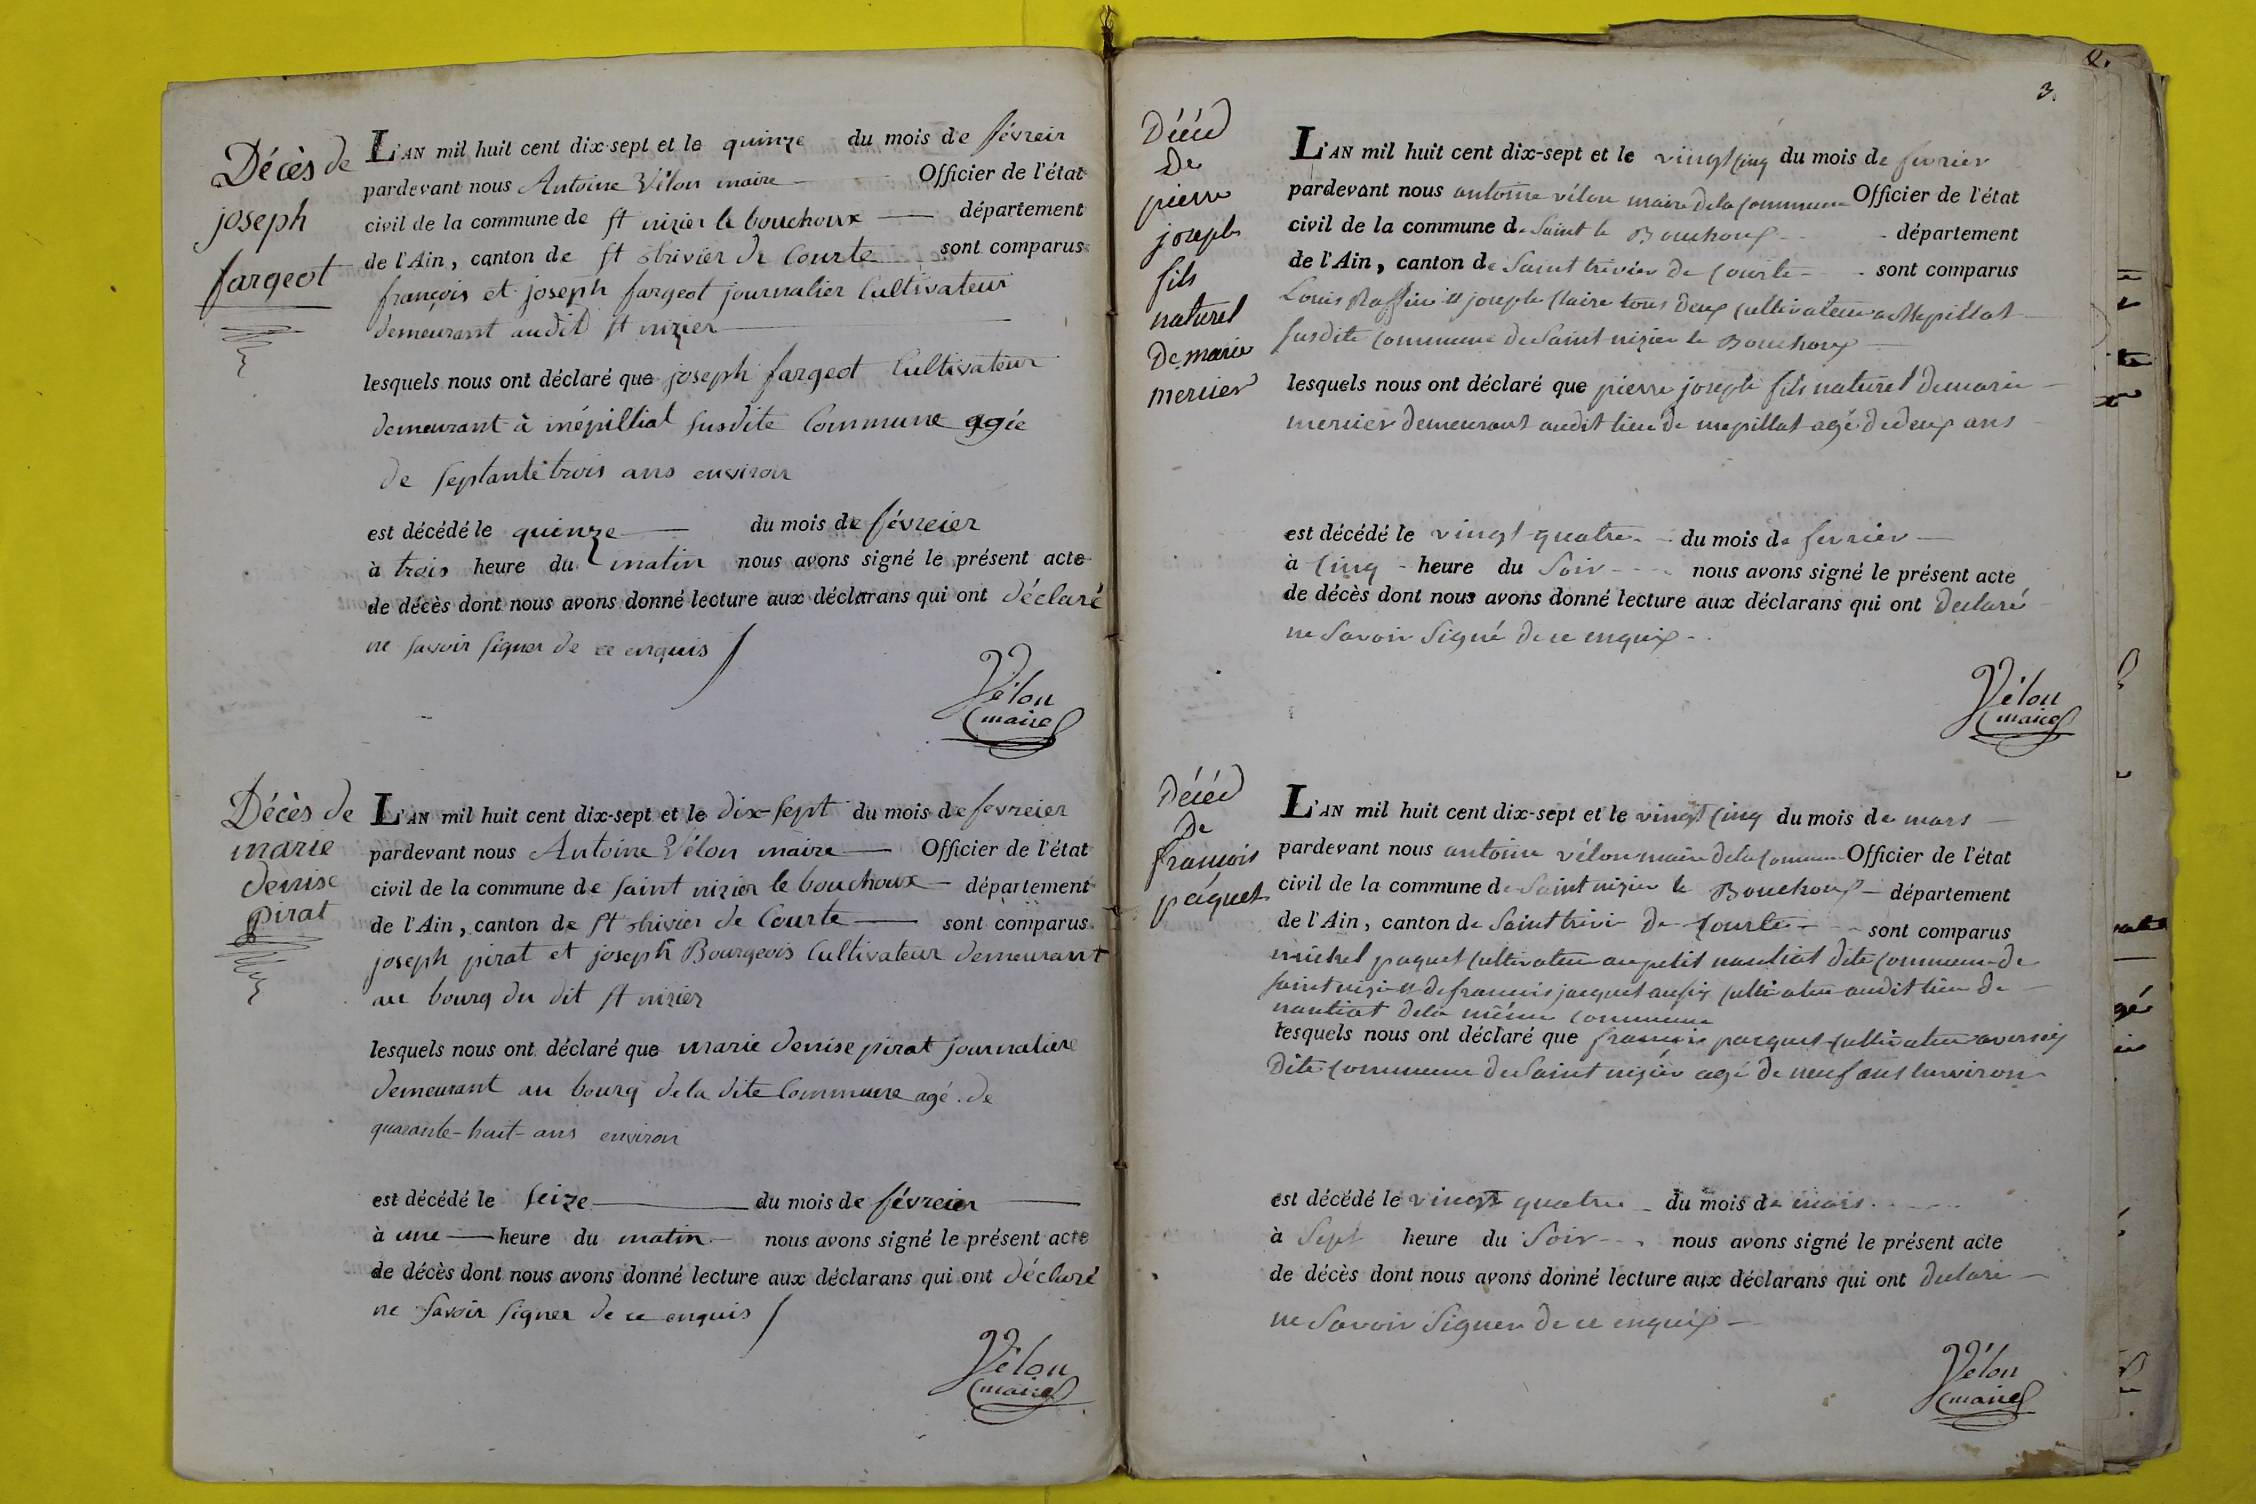 Décès de
joseph
fargeot
L'AN mil huit cent dix-sept et le quinze du mois de févreir
pardevant nous Antoine Vélon maire Officier de l'état
civil de la commune de st nizier le bouchoux département
de l'Ain, canton de st trivier de Courte sont comparus
françois et joseph fargeot journalier Cultivateur
demeurant audit st nizier
lesquels nous ont déclaré que joseph fargeot Cultivateur
demeurant à mépilliat susdite Commune agée
de septante trois ans environ
est décédé le quinze du mois de févreier
à trois heure du matin nous avons signé le présent acte
de décès dont nous avons donné lecture aux déclarans qui ont déclaré
ne savoir signer de ce enquis
Vélon
maire
Décès de
marie
denise
pirat
L'AN mil huit cent dix-sept et le dix-sept du mois de fevreier
pardevant nous Antoine Vélon maire Officier de l'état
civil de la commune de saint nizier le bouchoux département
de l'Ain, canton de st trivier de Courte sont comparus
joseph pirat et joseph Bourgeois Cultivateur demeurant
au bourg du dit st nizier
lesquels nous ont déclaré que marie denise pirat journaliere
demeurant au bourg de la dite Commune agé de
quarante-huit-ans environ
est décédé le seize du mois de févreier
à une heure du matin nous avons signé le présent acte
de décès dont nous avons donné lecture aux déclarans qui ont déclaré
ne savoir signer de ce enquis
Vélon
maire
2.
3.
Décéd
De
pierre
joseph
fils
naturel
De marie
mercier
L'AN mil huit cent dix-sept et le vingt cinq du mois de fevrier
pardevant nous antoine vélon maire de la commune Officier de l'état
civil de la commune de Saint le Bouchoux département
de l'Ain, canton de Saint trivier de Courte sont comparus
Louis Raffin et joseph Claire tous deux cultivateur a Mepillat
susdite commune de Saint nizier le Bouchoux
lesquels nous ont déclaré que pierre joseph fils naturel de marie
mercier demeurant audit lieu de mepillat agé de deux ans
est décédé le vingt quatre du mois de fevrier
à Cinq heure du Soir nous avons signé le présent acte
de décès dont nous avons donné lecture aux déclarans qui ont declaré
ne Savoir Signé de ce enquix
Vélon
maire
Décéd
De
francois
paquet
L'AN mil huit cent dix-sept et le vingt cinq du mois de mars
pardevant nous antoine vélon maire de la commune Officier de l'état
civil de la commune de Saint nizier le Bouchoux département
de l'Ain, canton de Saint trivi de Courte sont comparus
michel paquet cultivateur au petit nantiat dite commune de
saint nizie et de francois jacquet aussi cultivateur audit lieu de
nantiat de la même commune
lesquels nous ont déclaré que francois paquet cultivateur
Dite commune de Saint nizier agé de neuf ans environ
est décédé le vingt quatre du mois de mars
à Sept heure du Soir nous avons signé le présent acte
de décès dont nous avons donné lecture aux déclarans qui ont declaré
ne Savoir Signer de ce enquix
Vélon
maire